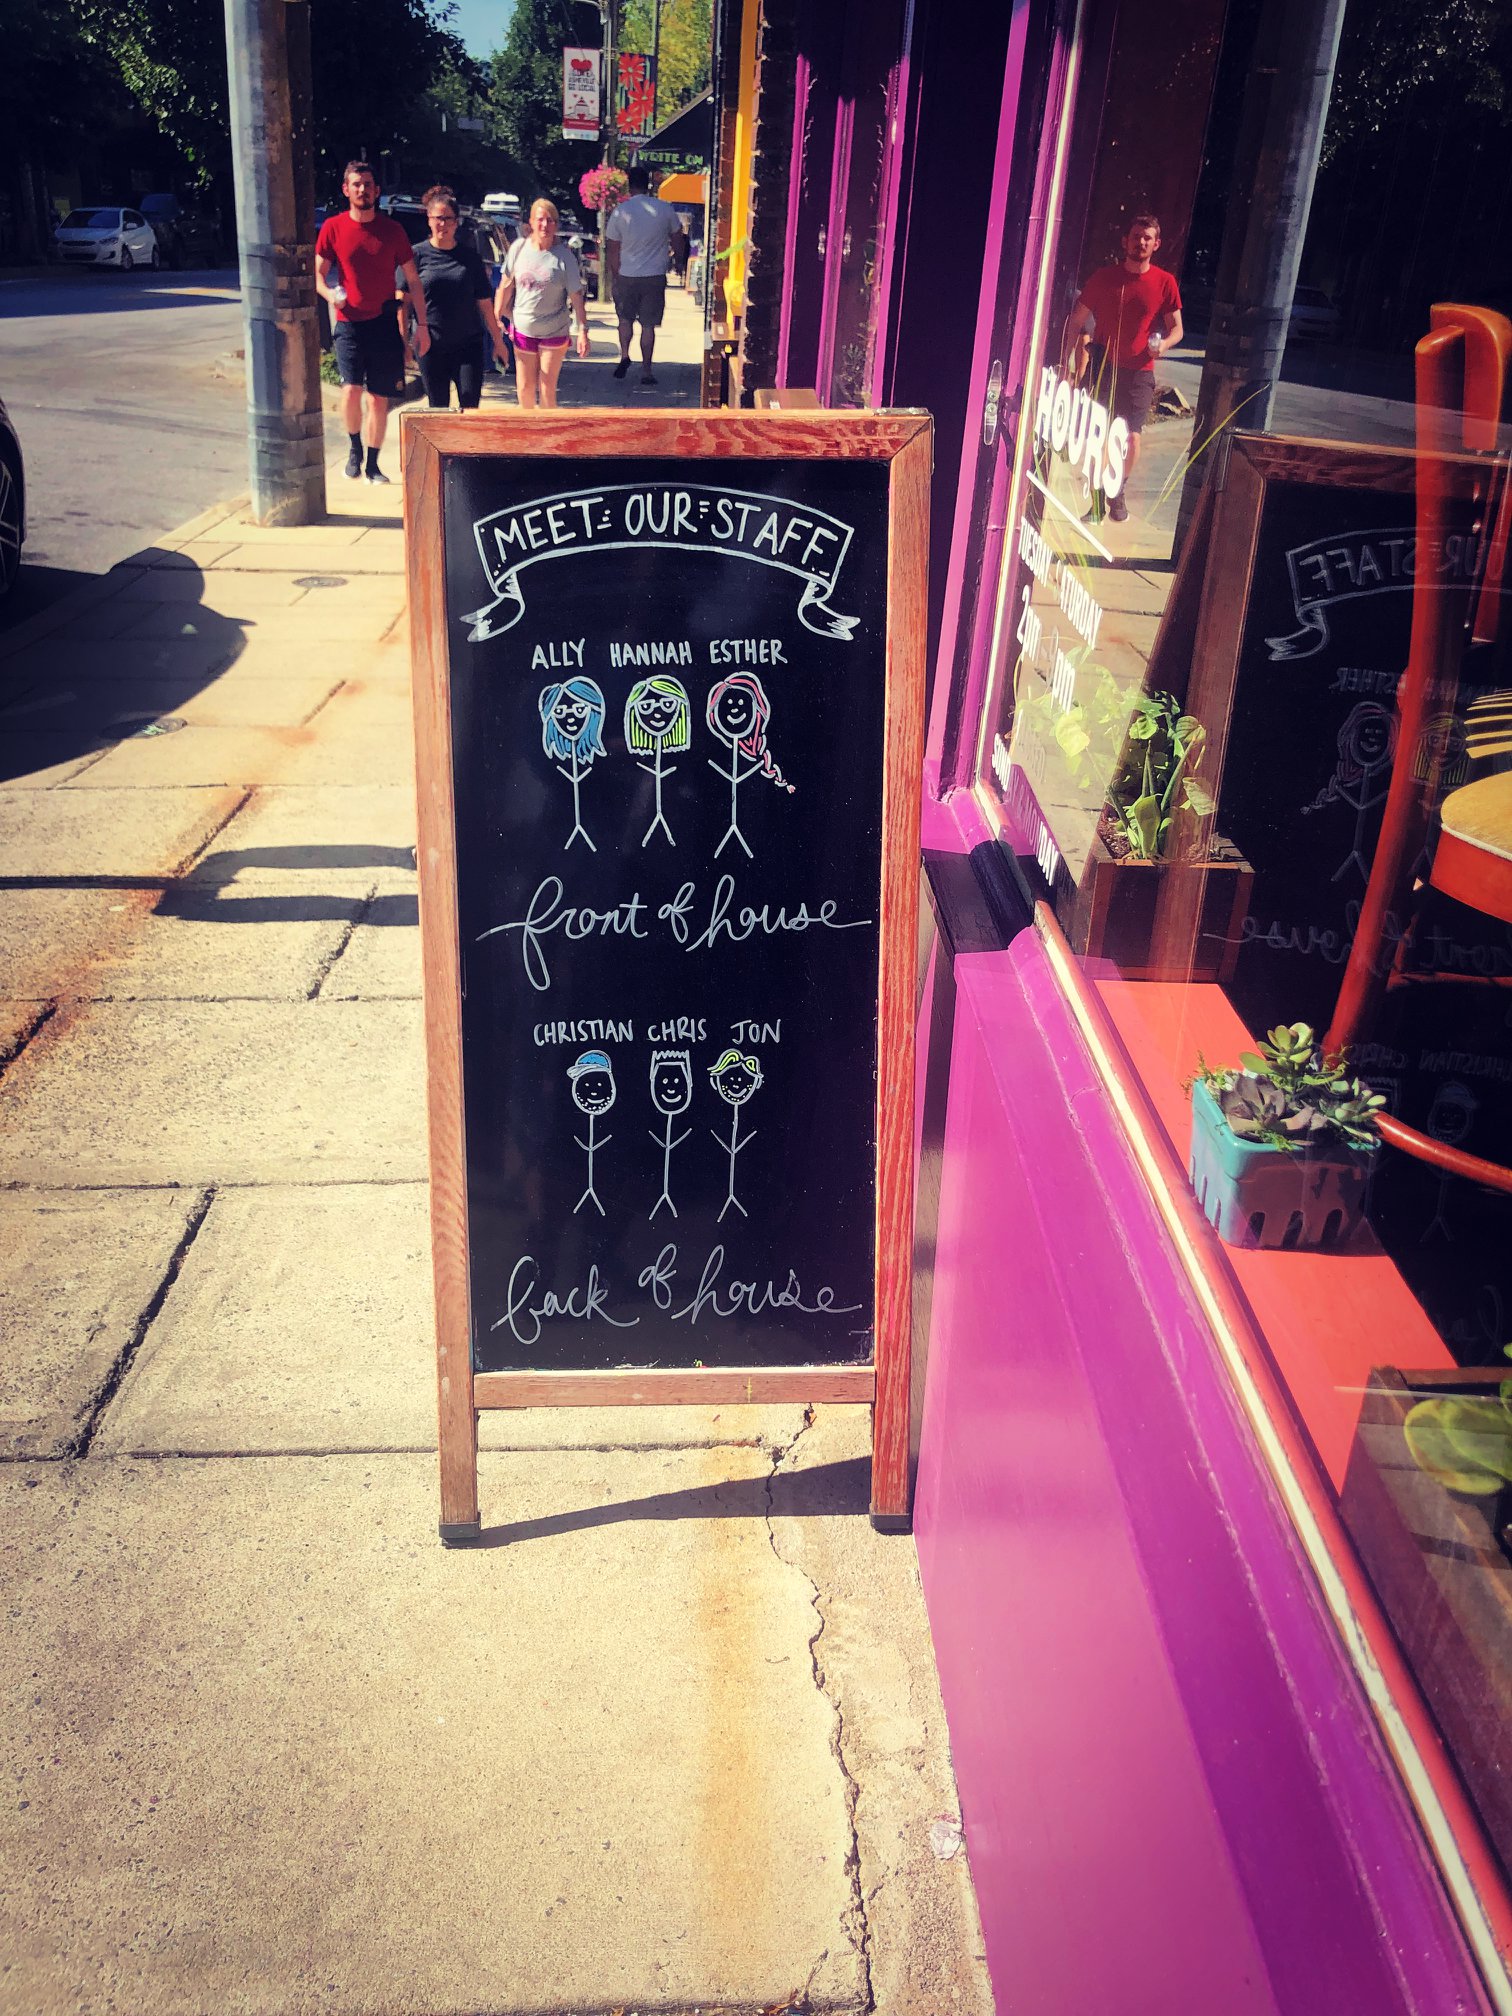 MEET OUR STAFF
ALLY HANNAH ESTHER
front of house
CHRISTIAN CHRIS JON
back of house
HOURS
TUESDAY
2pm
pm
WRITE ON